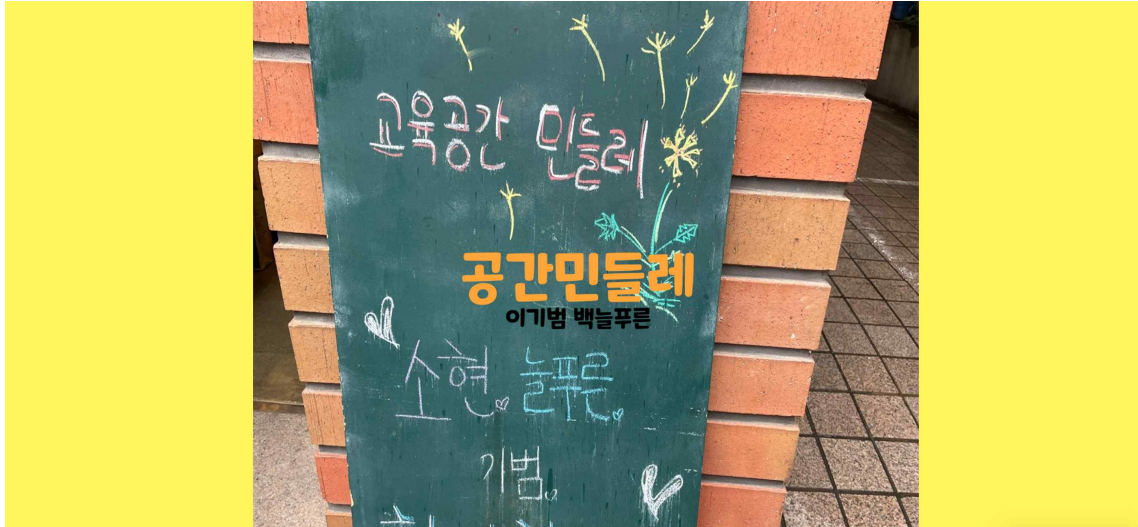 교육공간 민들레
공간민들레
이기범 백늘푸른
소현 늘푸른
기범